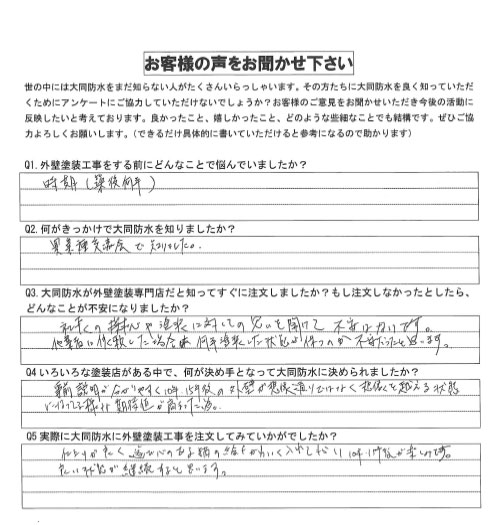 お客様の声をお聞かせ下さい
世の中には大同防水をまだ知らない人がたくさんいらっしゃいます。その方たちに大同防水を良く知っていただ
くためにアンケートにご協力していただけないでしょうか？お客様のご意見をお聞かせいただき今後の活動に
反映したいと考えております。良かったこと、嬉しかったこと、どのような些細なことでも結構です。ぜひご協
力よろしくお願いします。（できるだけ具体的に書いていただけると参考になるので助かります）
Q1. 外壁塗装工事をする前にどんなことで悩んでいましたか？
時期（築後何年）
Q2. 何がきっかけで大同防水を知りましたか？
異業種交流会で知りました。
Q3. 大同防水が外壁塗装専門店だと知ってすぐに注文しましたか？もし注文しなかったとしたら、
どんなことが不安になりましたか？
塗装に対しての思いを聞けて不安はないです。
他業者に依頼した場合 何年塗装した状態が保つのか不安だったと思います。
Q4 いろいろな塗装店がある中で、何が決め手となって大同防水に決められましたか？
事前説明が分かりやすく10年15年後の外壁が想像通りではなく想像を越える状態
になってる様な期待値が高まった為。
Q5 実際に大同防水に外壁塗装工事を注文してみていかがでしたか？
仕上りがよく 10年15年後が楽しみです。
良い状態が継続すると思います。